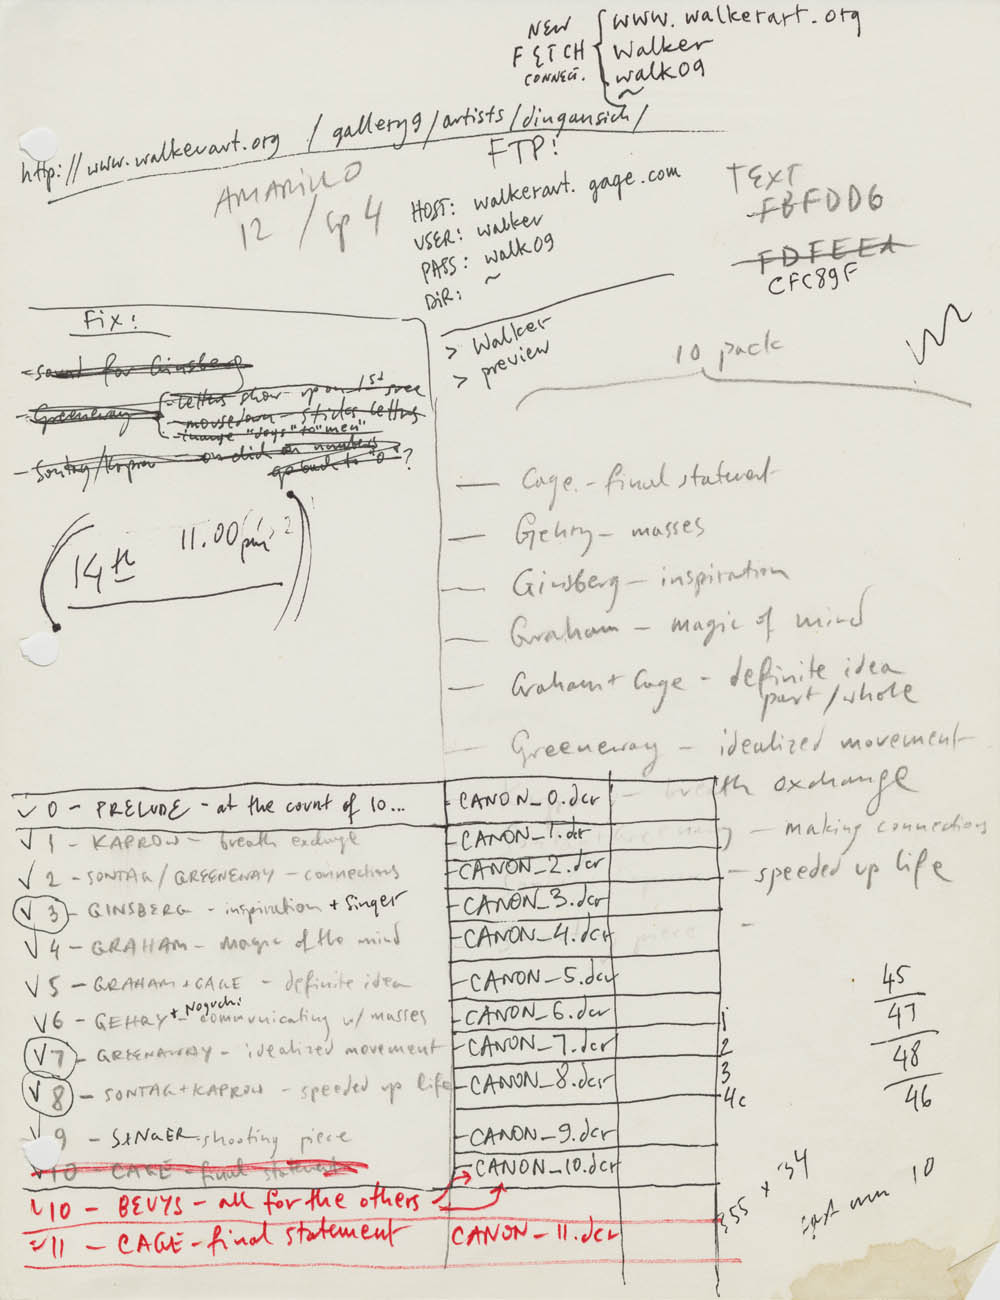 NEW
FETCH
CONNECT.
www.walkerart.org
Walker
walk09
~
http://www.walkerart.org/gallery9/artists/dingansich/
AMARILLO
12 / Gp 4
FTP!
HOST: walkerart.gage.com
USER: walker
PASS: walk09
DIR: ~
TEXT
FBFDDG
FDFEEA
CFC89F
> Walker
> preview
Fix!
- sound for Ginsberg
- Greeneway - letters show up on 1st free
- mousedown - sticks letters
- change "days" to "men"
- Sontag/Kaprow - on click on numbers
go back to "0"?
14th 11.00
10 pack
— Cage - final statement
— Gehry - masses
— Ginsberg - inspiration
— Graham - magic of mind
— Graham + Cage - definite idea
part/whole
— Greeneway - idealized movement
- breath exchange
- making connections
- speeded up life
piece
✓ 0 - PRELUDE - at the count of 10... CANON_0.dcr
✓ 1 - KAPROW - breath exchange CANON_1.dcr
✓ 2 - SONTAG/GREENEWAY - connections CANON_2.dcr
✓ 3 - GINSBERG - inspiration + Singer CANON_3.dcr
✓ 4 - GRAHAM - magic of the mind CANON_4.dcr
✓ 5 - GRAHAM + CAGE - definite idea CANON_5.dcr
✓ 6 - GEHRY + Noguchi - communicating w/ masses CANON_6.dcr
✓ 7 - GREENAWAY - idealized movement CANON_7.dcr
✓ 8 - SONTAG + KAPROW - speeded up life CANON_8.dcr
✓ 9 - SINGER - shooting piece CANON_9.dcr
✓ 10 - CAGE - final statement CANON_10.dcr
✓ 10 - BEUYS - all for the others
✓ 11 - CAGE - final statement CANON_11.dcr
1
2
3
4c
45
47
48
46
355 x 34
10